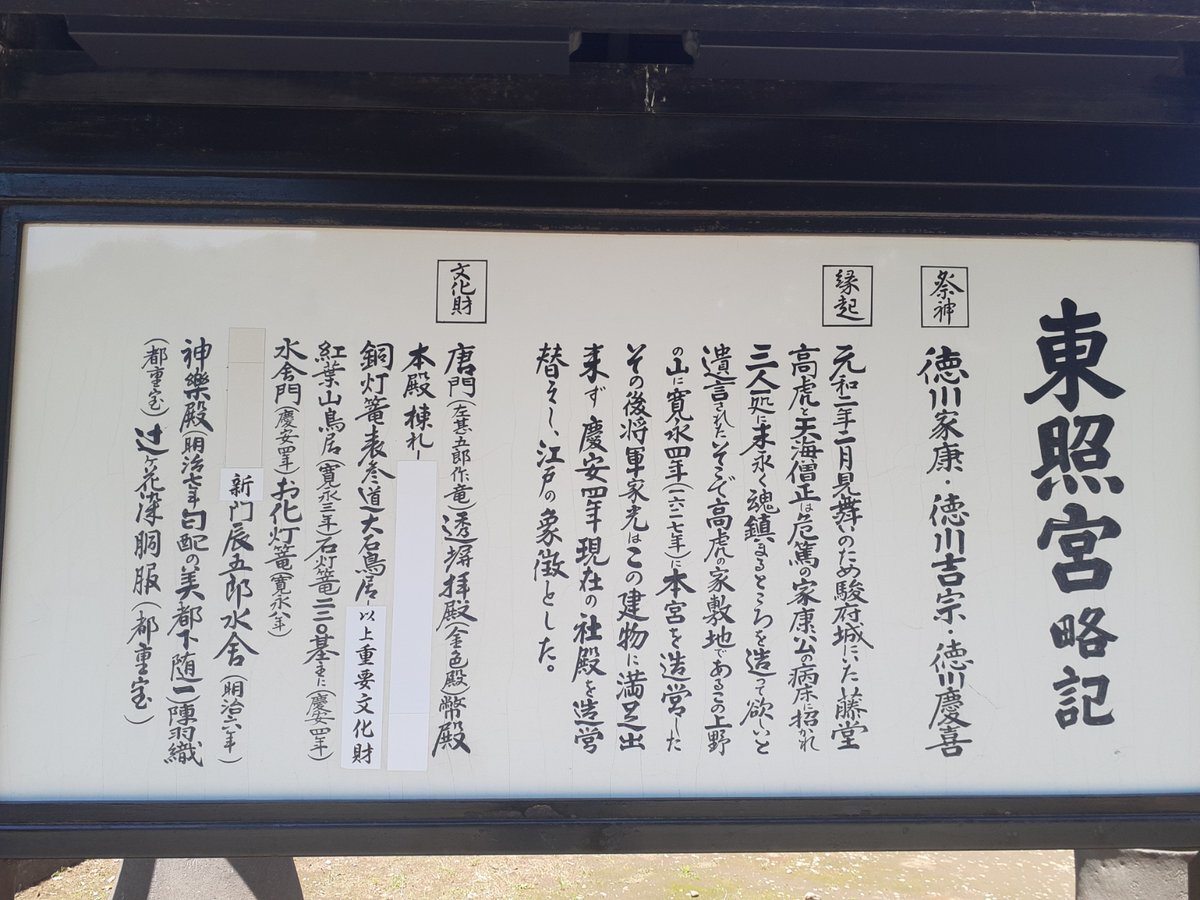 東照宮略記
祭神
徳川家康・徳川吉宗・徳川慶喜
縁起
元和二年二月見舞いのため駿府城にいた藤堂
高虎と天海僧正は危篤の家康公の病床に招かれ
三人一処に末永く魂鎮まるところを造って欲しいと
遺言されたそこで高虎の家敷地であるこの上野
の山に寛永四年(一六二七年)に本宮を造営した
その後将軍家光はこの建物に満足出
来ず慶安四年現在の社殿を造営
替えし、江戸の象徴とした。
文化財
唐門(左甚五郎作竜)透塀拝殿(金色殿)幣殿
本殿棟札
銅灯篭表参道大石鳥居 以上重要文化財
紅葉山鳥居(寛永三年)石灯篭二二〇基(慶安四年)
水舎門(慶安四年)お化灯篭(寛永八年)
新門辰五郎水舎(明治六年)
神樂殿(明治七年勾配の美都下随一)陳羽織
(都重宝)辻ヶ花染胴服(都重宝)